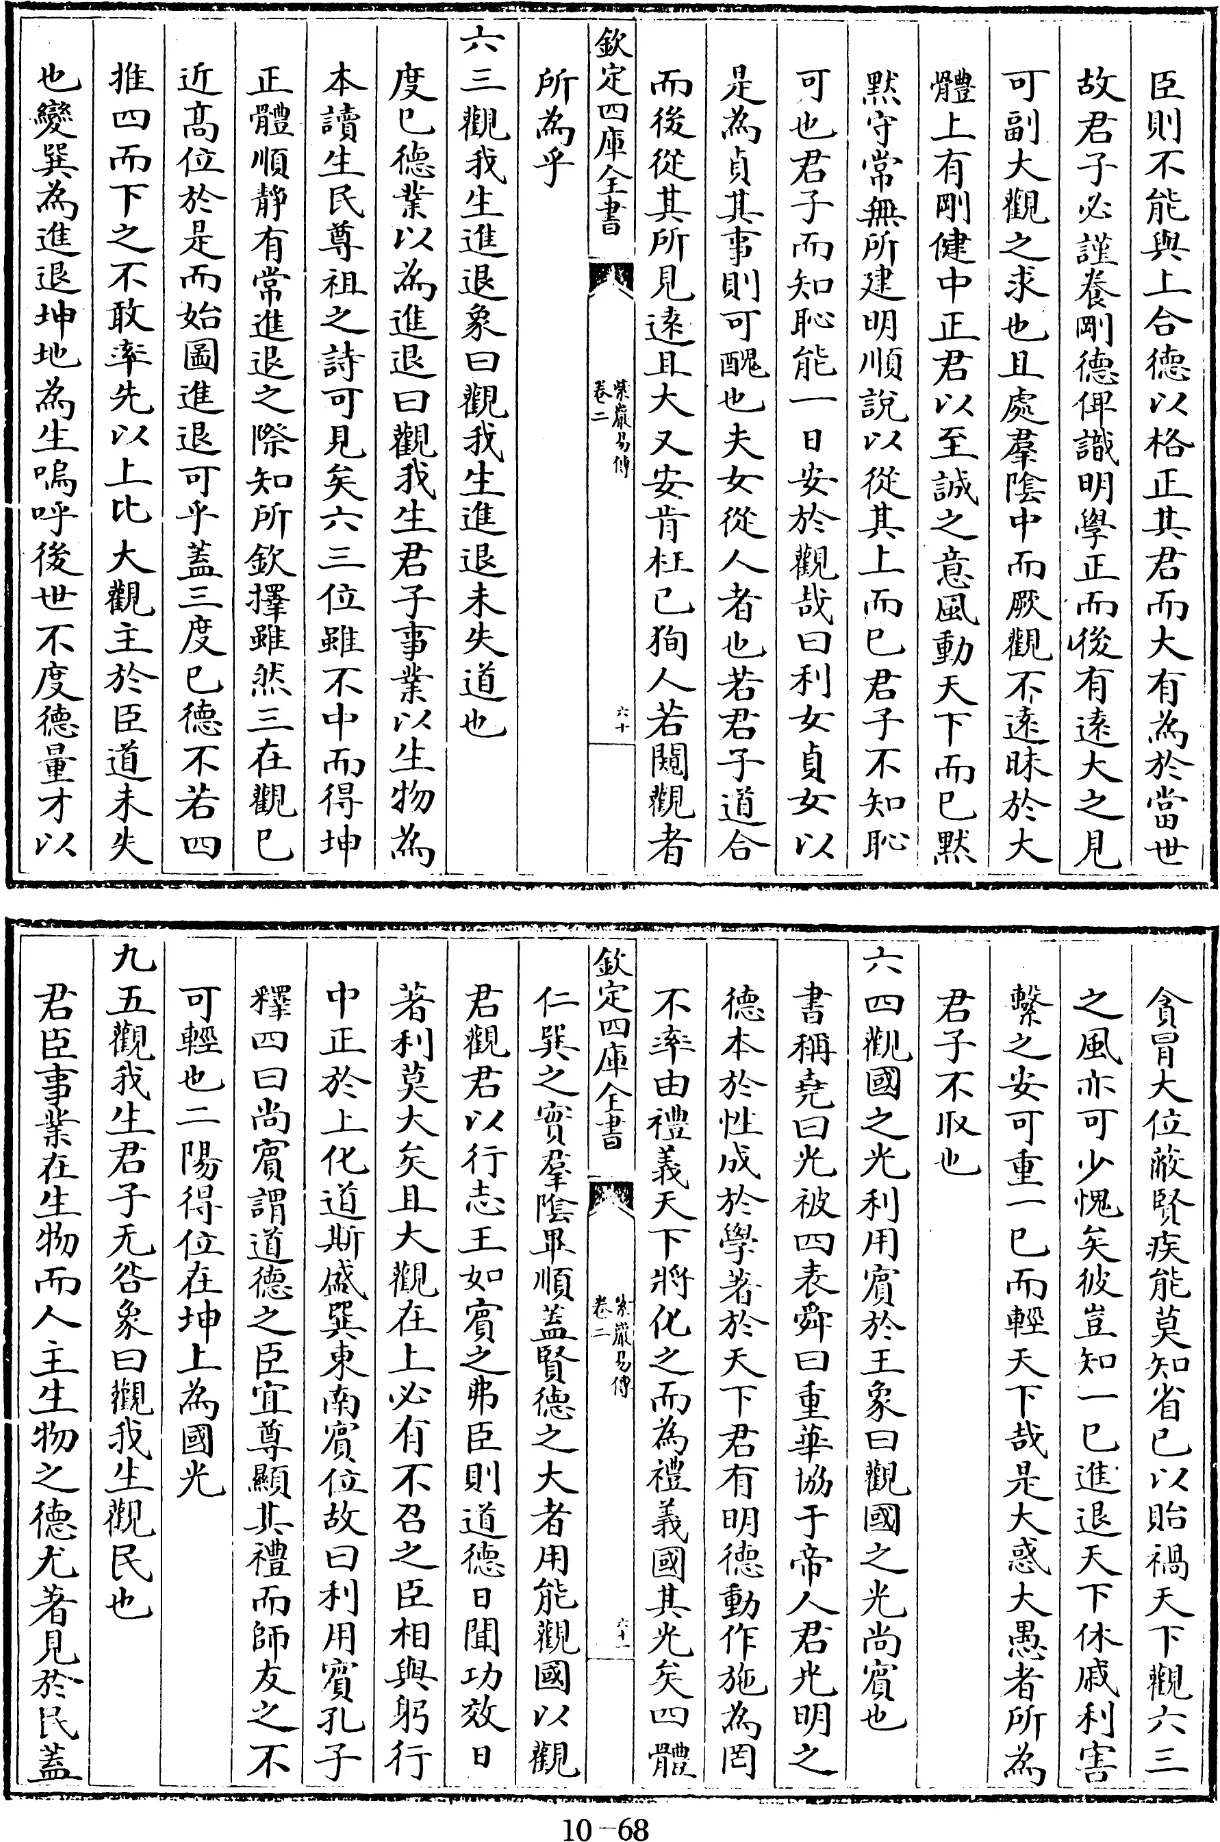 臣則不能與上合德以格正其君而大有為於當世
故君子必謹養剛德俾識明學正而後有遠大之見
可副大觀之求也且處羣陰中而厥觀不遠昧於大
體上有剛健中正君以至誠之意風動天下而已黙
黙守常無所建明順說以從其上而已君子不知恥
可也君子而知恥能一日安於觀哉曰利女貞女以
是為貞其事則可醜也夫女從人者也若君子道合
而後從其所見遠且大又安肯枉已狥人若闚觀者
所為乎
六三觀我生進退象曰觀我生進退未失道也
度已德業以為進退曰觀我生君子事業以生物為
本讀生民尊祖之詩可見矣六三位雖不中而得坤
正體順靜有常進退之際知所欽擇雖然三在觀已
近髙位於是而始圖進退可乎蓋三度已德不若四
推四而下之不敢率先以上比大觀主於臣道未失
也變巽為進退坤地為生嗚呼後世不度德量才以
欽定四庫全書
紫巖易傳
卷二
六十
貪冒大位蔽賢疾能莫知省已以貽禍天下觀六三
之風亦可少愧矣彼豈知一已進退天下休戚利害
繫之安可重一已而輕天下哉是大惑大愚者所為
君子不取也
六四觀國之光利用賓於王象曰觀國之光尚賓也
書稱堯曰光被四表舜曰重華協于帝人君光明之
德本於性成於學著於天下君有明德動作施為罔
不率由禮義天下將化之而為禮義國其光矣四體
仁巽之實羣陰畢順蓋賢德之大者用能觀國以觀
君觀君以行志王如賓之弗臣則道德日聞功效日
著利莫大矣且大觀在上必有不召之臣相與躬行
中正於上化道斯盛巽東南賓位故曰利用賓孔子
釋四曰尚賓謂道德之臣宜尊顯其禮而師友之不
可輕也二陽得位在坤上為國光
九五觀我生君子无咎象曰觀我生觀民也
君臣事業在生物而人主生物之德尤著見於民蓋
欽定四庫全書
紫巖易傳
卷二
六十一
10-68